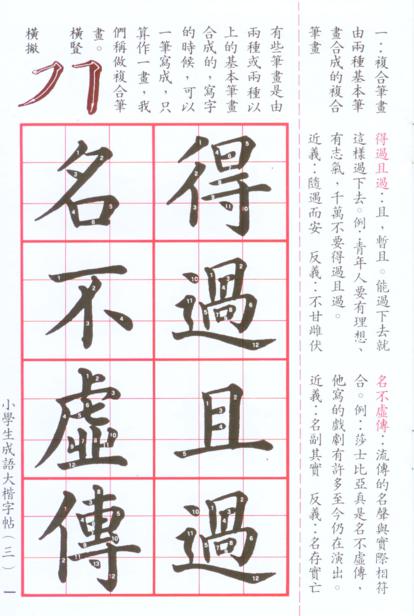 一：複合筆畫
由兩種基本筆
畫合成的複合
筆畫
有些筆畫是由
兩種或兩種以
上的基本筆畫
合成的，寫字
的時候，可以
一筆寫成，只
算作一畫，我
們稱做複合筆
畫。
橫豎
橫撇
得過且過：且，暫且。能過下去就
這樣過下去。例：青年人要有理想、
有志氣，千萬不要得過且過。
近義：隨遇而安　反義：不甘雌伏
名不虛傳：流傳的名聲與實際相符
合。例：莎士比亞真是名不虛傳，
他寫的戲劇有許多至今仍在演出。
近義：名副其實　反義：名存實亡
得過且過
名不虛傳
小學生成語大楷字帖（三）　一